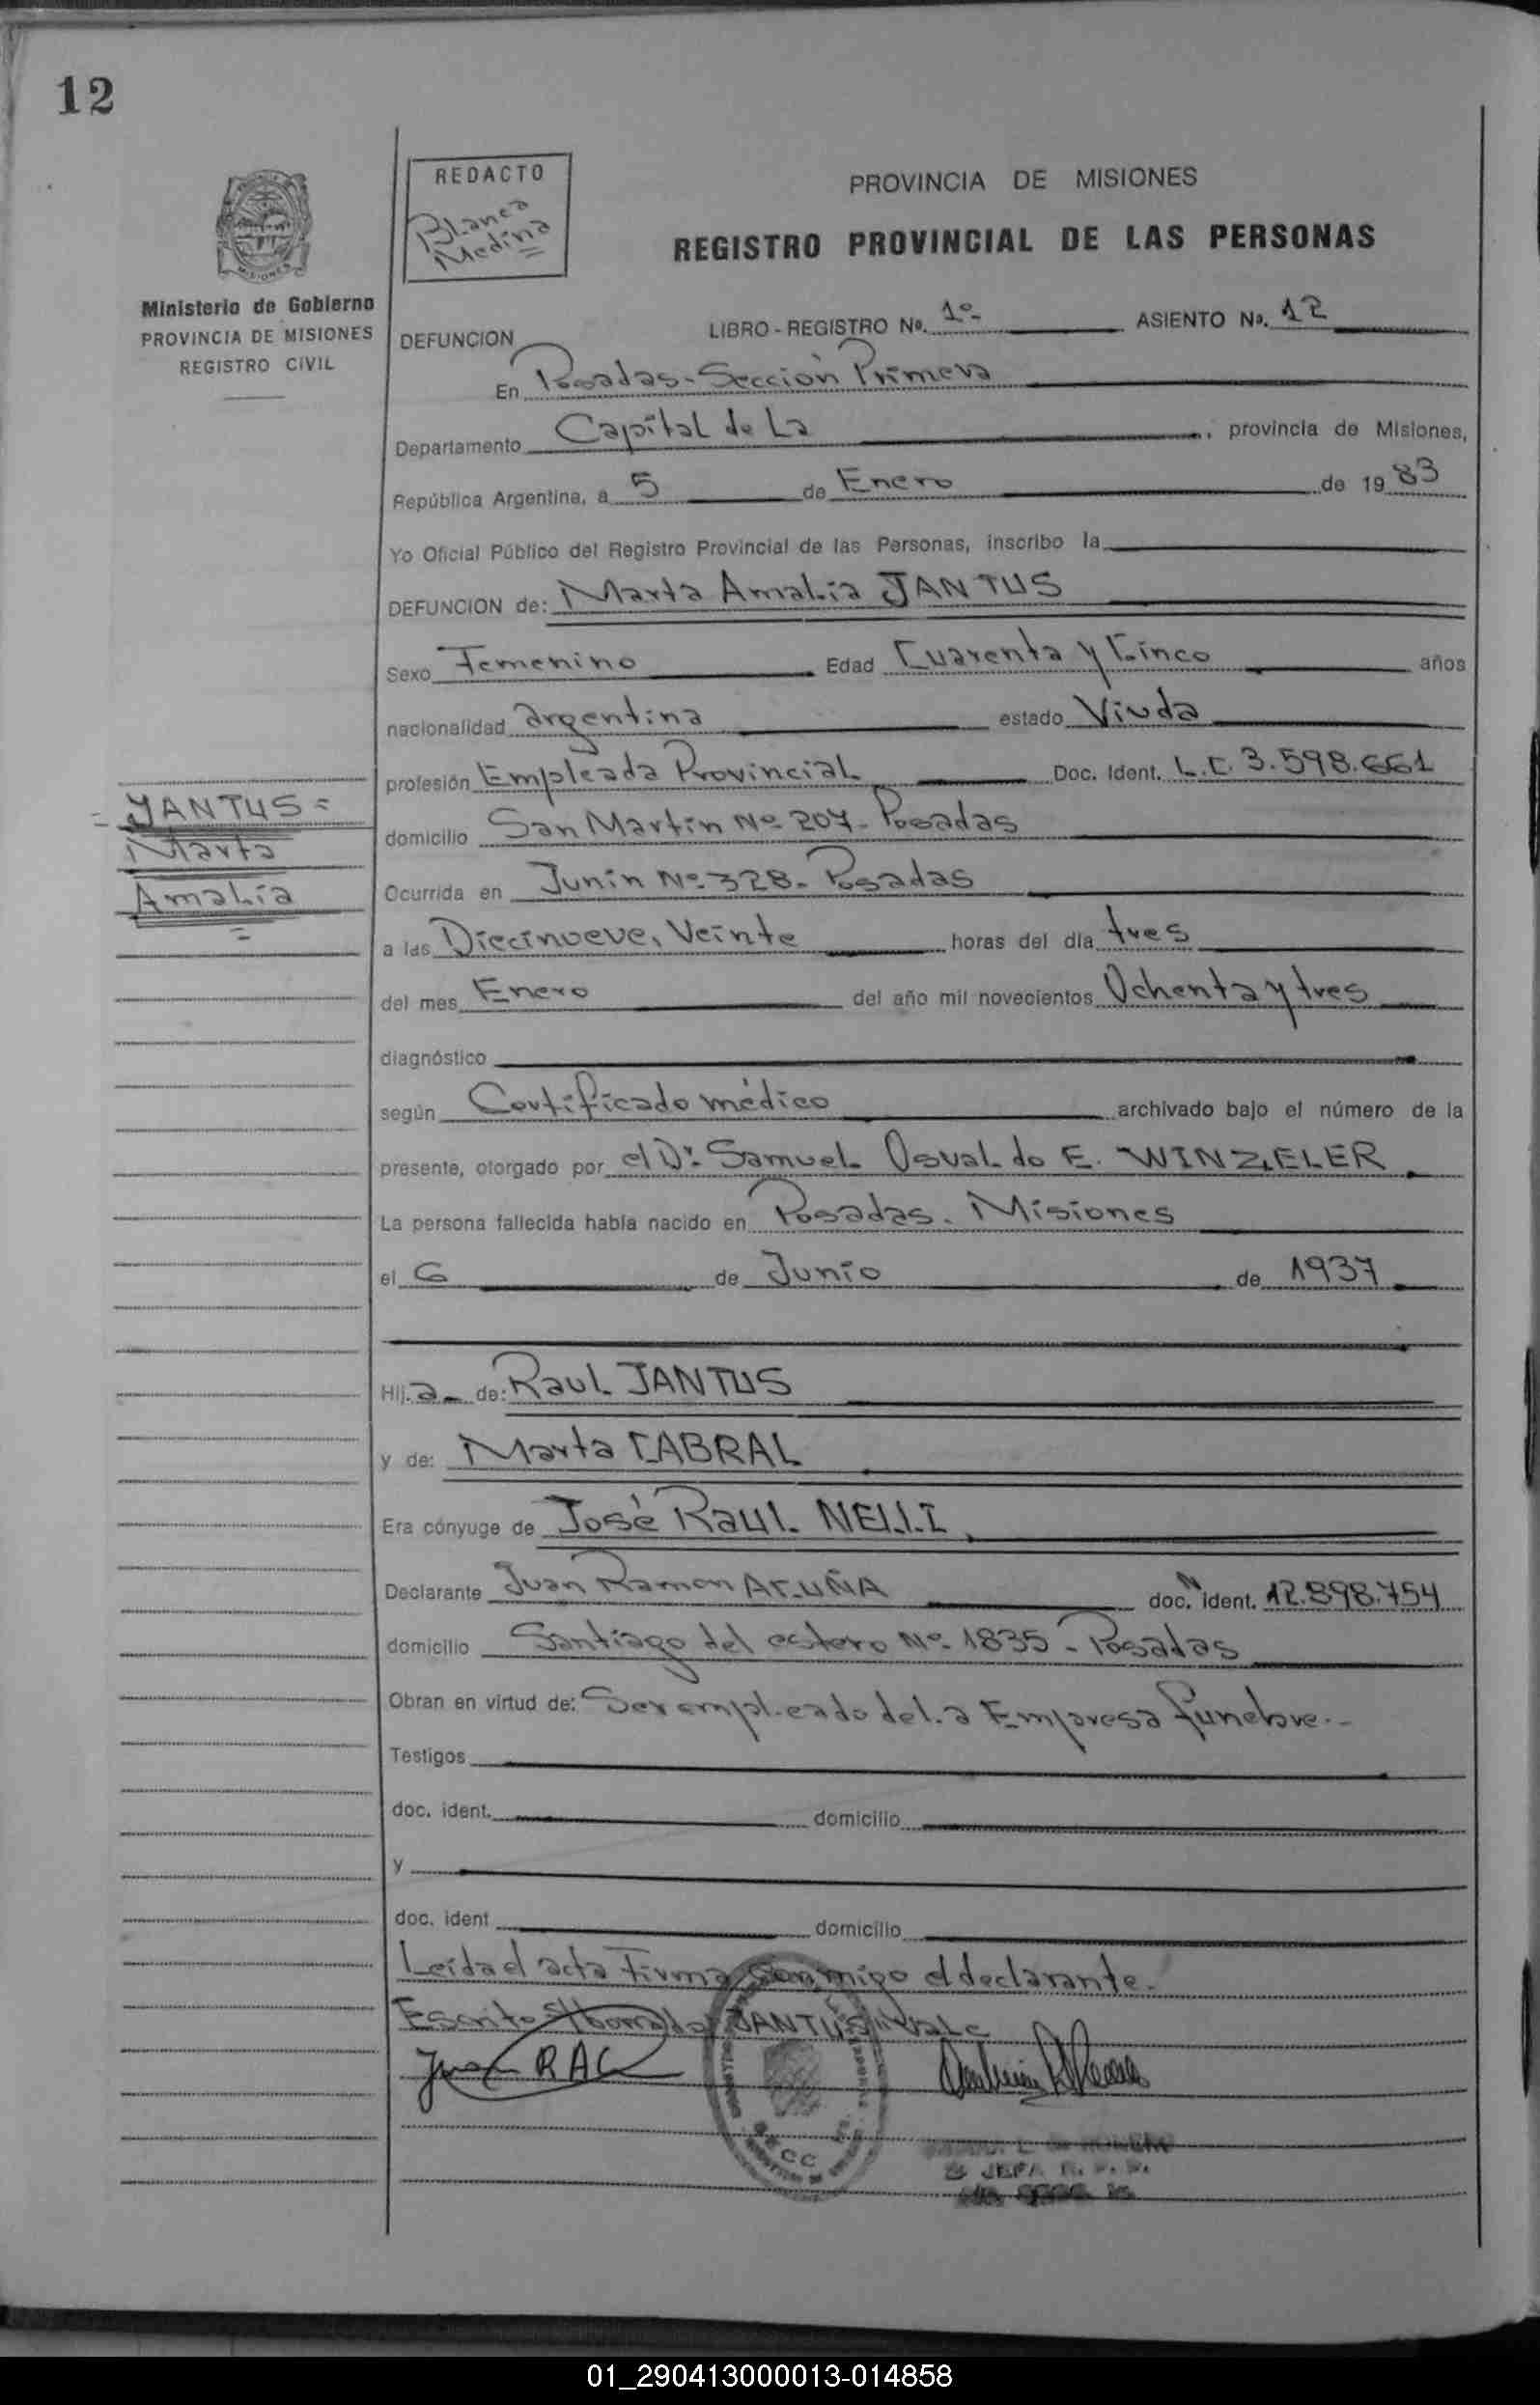 12
REDACTO
Blanca
Medina
PROVINCIA DE MISIONES
REGISTRO PROVINCIAL DE LAS PERSONAS
MISIONES
Ministerio de Gobierno
PROVINCIA DE MISIONES
REGISTRO CIVIL
DEFUNCION LIBRO - REGISTRO No. 1º- ASIENTO No. 12
En Posadas- Sección Primera
Departamento Capital de La , provincia de Misiones,
República Argentina, a 5 de Enero de 19 83
Yo Oficial Público del Registro Provincial de las Personas, inscribo la
DEFUNCION de: Marta Amalia JANTUS
Sexo Femenino Edad Cuarenta y Cinco años
nacionalidad argentina estado Viuda
profesión Empleada Provincial Doc. Ident. L.C. 3.598.661
domicilio San Martín Nº 207- Posadas
= JANTUS =
Marta
Amalia
=
Ocurrida en Junín Nº 328- Posadas
a las Diecinueve, Veinte horas del día tres
del mes Enero del año mil novecientos Ochenta y tres
diagnóstico
según Certificado médico archivado bajo el número de la
presente, otorgado por el Dr. Samuel Osvaldo E. WINZLELER
La persona fallecida había nacido en Posadas. Misiones
el 6 de Junio de 1937
Hij.a de: Raul JANTUS
y de: Marta CABRAL
Era cónyuge de José Raul NELLI
Declarante Juan Ramon ACUÑA doc. N ident. 12.898.754
domicilio Santiago del estero Nº 1835 - Posadas
Obran en virtud de: Ser empleado de la Empresa fúnebre.-
Testigos
doc. ident. domicilio
y
doc. ident domicilio
Leída el acta Firma conmigo el declarante.
Escrito S/borrado: JANTUS: Vale
Juan RAC
JEFA R. P. P.
01_290413000013-014858